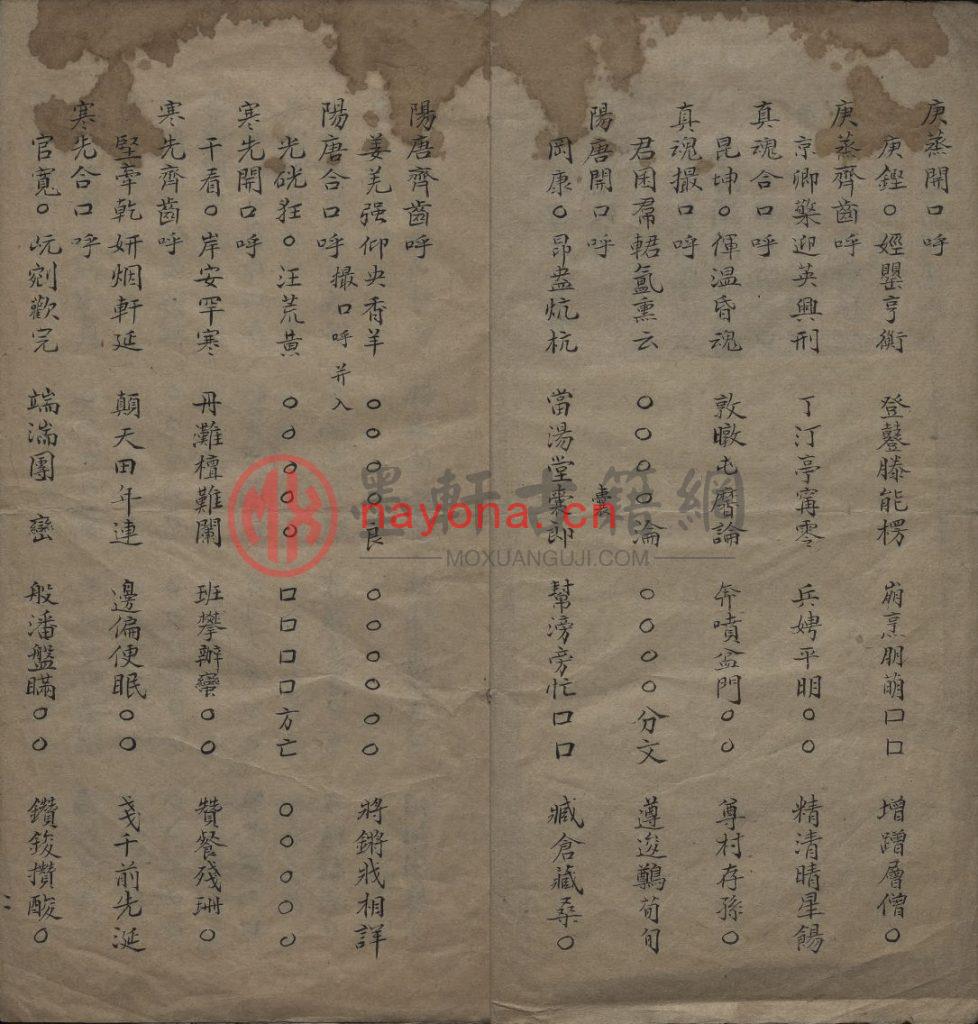 庚蒸開口呼
庚鏗○娙罌亨衡 登鼟滕能楞 崩烹朋萌口口 增蹭層僧○
庚蒸齊齒呼
京卿䒟迎英興刑 丁汀亭甯零 兵娉平明○○ 精清晴星餳
真魂合口呼
昆坤○倱温昏魂 敦暾屯麐論 奔噴盆門○○ 尊村存孫○
真魂撮口呼
君困羣輑氳熏云 ○○○○淪 ○○○○分文 遵逡鷷荀旬
陽唐開口呼
岡康○昂盎炕杭 當湯堂囊郎 幫滂旁忙口口 臧倉藏桑○
囊
陽唐齊齒呼
姜羌强仰央香羊 ○○○○良 ○○○○○○ 將鏘戕相詳
陽唐合口呼撮口呼并入
光硄狂○汪荒黄 ○○○○○ 口口口口方亡 ○○○○○
寒先開口呼
干看○岸安罕寒 丹灘檀難闌 班攀辦蠻○○ 贊餐殘珊○
寒先齊齒呼
堅牽乾妍烟軒延 顛天田年連 邊偏便眠○○ 戔千前先涎
寒先合口呼
官寬○岏剜歡完 端湍團 巒 般潘盤瞞○○ 鑽鋑攢酸○
墨軒古籍網
nayona.cn
MOXUANGUJI.COM